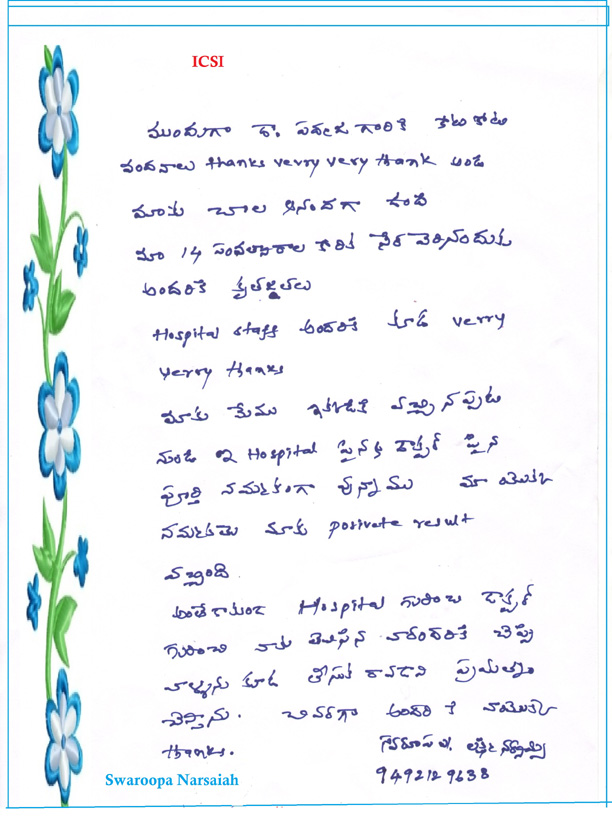 ICSI
ముందుగా డా. పద్మజ గారికి కోటి కోటి
వందనాలు thanks vevry very thank అండి
మాకు చాల ఆనందగా ఉంది
మా 14 సంవత్సారాల కోరిక నేర వెరినందుకు
అందరికి కృతజ్ఞతలు
Hospital staff అందరికి కూడ verry
verry thanks
మాకు మేము ఇక్కడికి వచ్చినప్పుటి
నుండి ఈ Hospital పైన డాక్టర్ పైన
పూర్తి నమ్మకంగా వున్నాము మా యొక్క
నమ్మకమే మాకు posivate result
వచ్చింది.
అంతే కాకుండ Hospital గురించి డాక్టర్
గురించి నాకు తెలిసిన వారందరికి చెప్పి
వాళ్ళను కూడ తీసుక రావడాని ప్రయత్నం
చేస్తాను. చివరగా అందరి కి నాయొక్క
thanks.
Swaroopa Narsaiah
9492129638